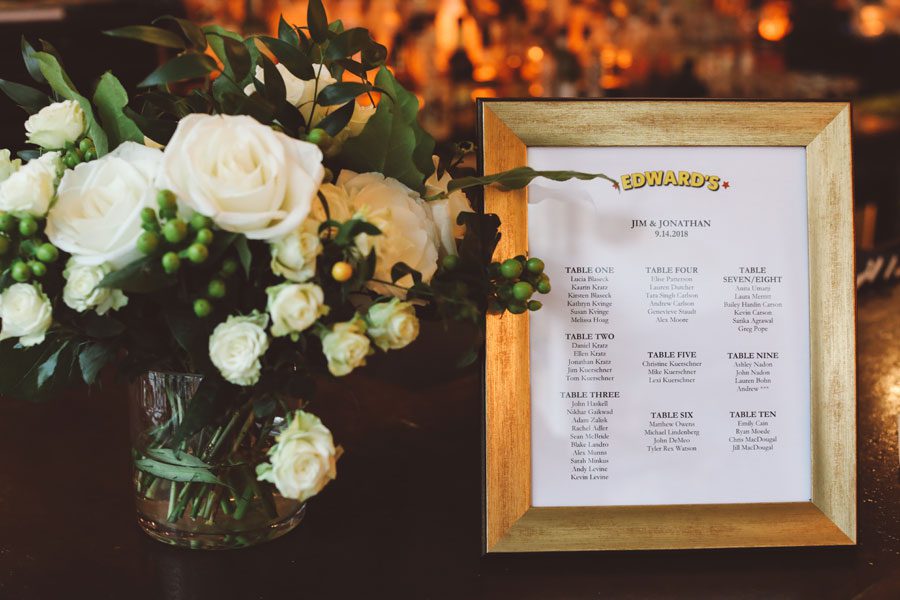 EDWARD'S
JIM & JONATHAN
9.14.2018
TABLE ONE
Lucia Blaseck
Kaarin Kratz
Kirsten Blaseck
Kathryn Kvinge
Susan Kvinge
Melissa Hoag
TABLE TWO
Daniel Kratz
Ellen Kratz
Jonathan Kratz
Jim Kuerschner
Tom Kuerschner
TABLE THREE
John Haskell
Nikhar Gaikwad
Adam Zalisk
Rachel Adler
Sean McBride
Blake Landro
Alex Munns
Sarah Minkus
Andy Levine
Kevin Levine
TABLE FOUR
Elise Patterson
Lauren Dutcher
Tara Singh Carlson
Andrew Carlson
Genevieve Staudt
Alex Moore
TABLE FIVE
Christine Kuerschner
Mike Kuerschner
Lexi Kuerschner
TABLE SIX
Matthew Owens
Michael Lindenberg
John DeMeo
Tyler Rex Watson
TABLE
SEVEN/EIGHT
Anna Umanz
Laura Merritt
Bailey Hardin Carson
Kevin Carson
Sarika Agrawal
Greg Pope
TABLE NINE
Ashley Nadon
John Nadon
Lauren Bohn
Andrew ***
TABLE TEN
Emily Cain
Ryan Moede
Chris MacDougal
Jill MacDougal